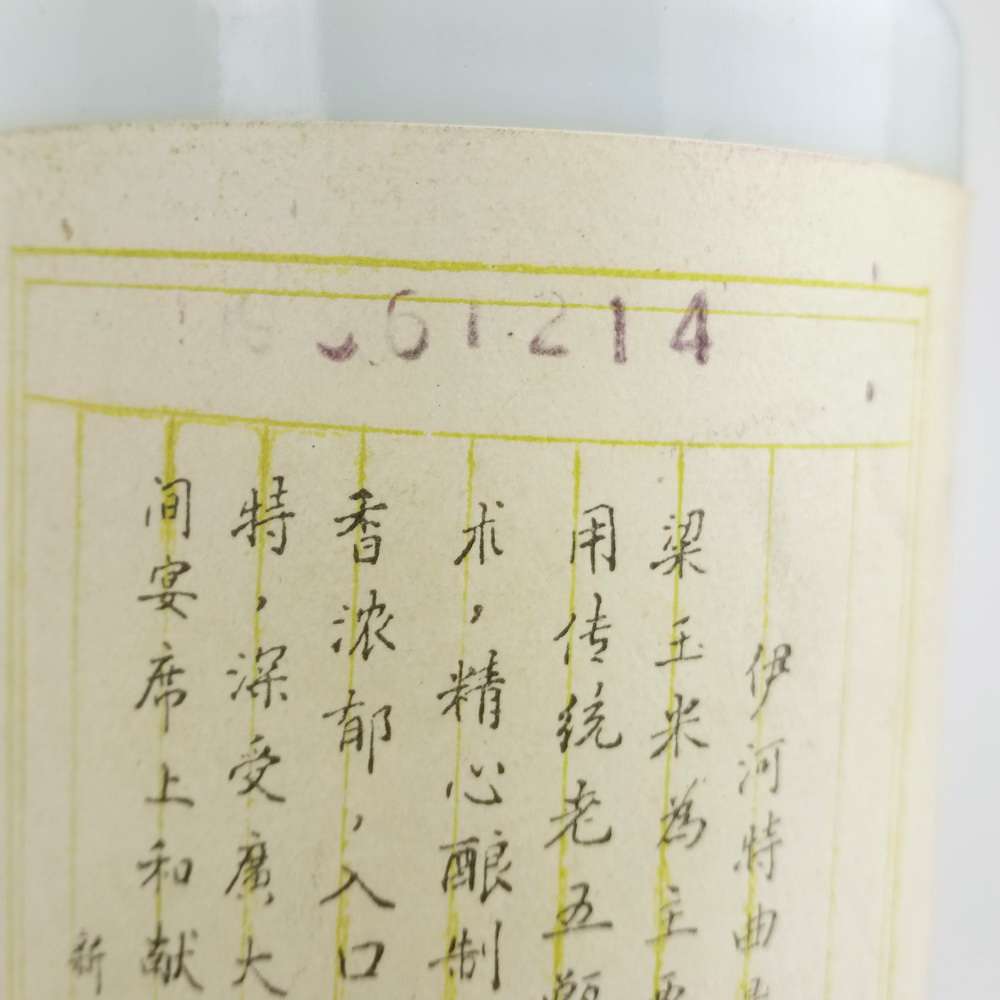 61214
伊河特曲
梁玉米為主
用传统老五
术，精心酿制
香浓郁，入口
特，深受廣大
间宴席上和献
新